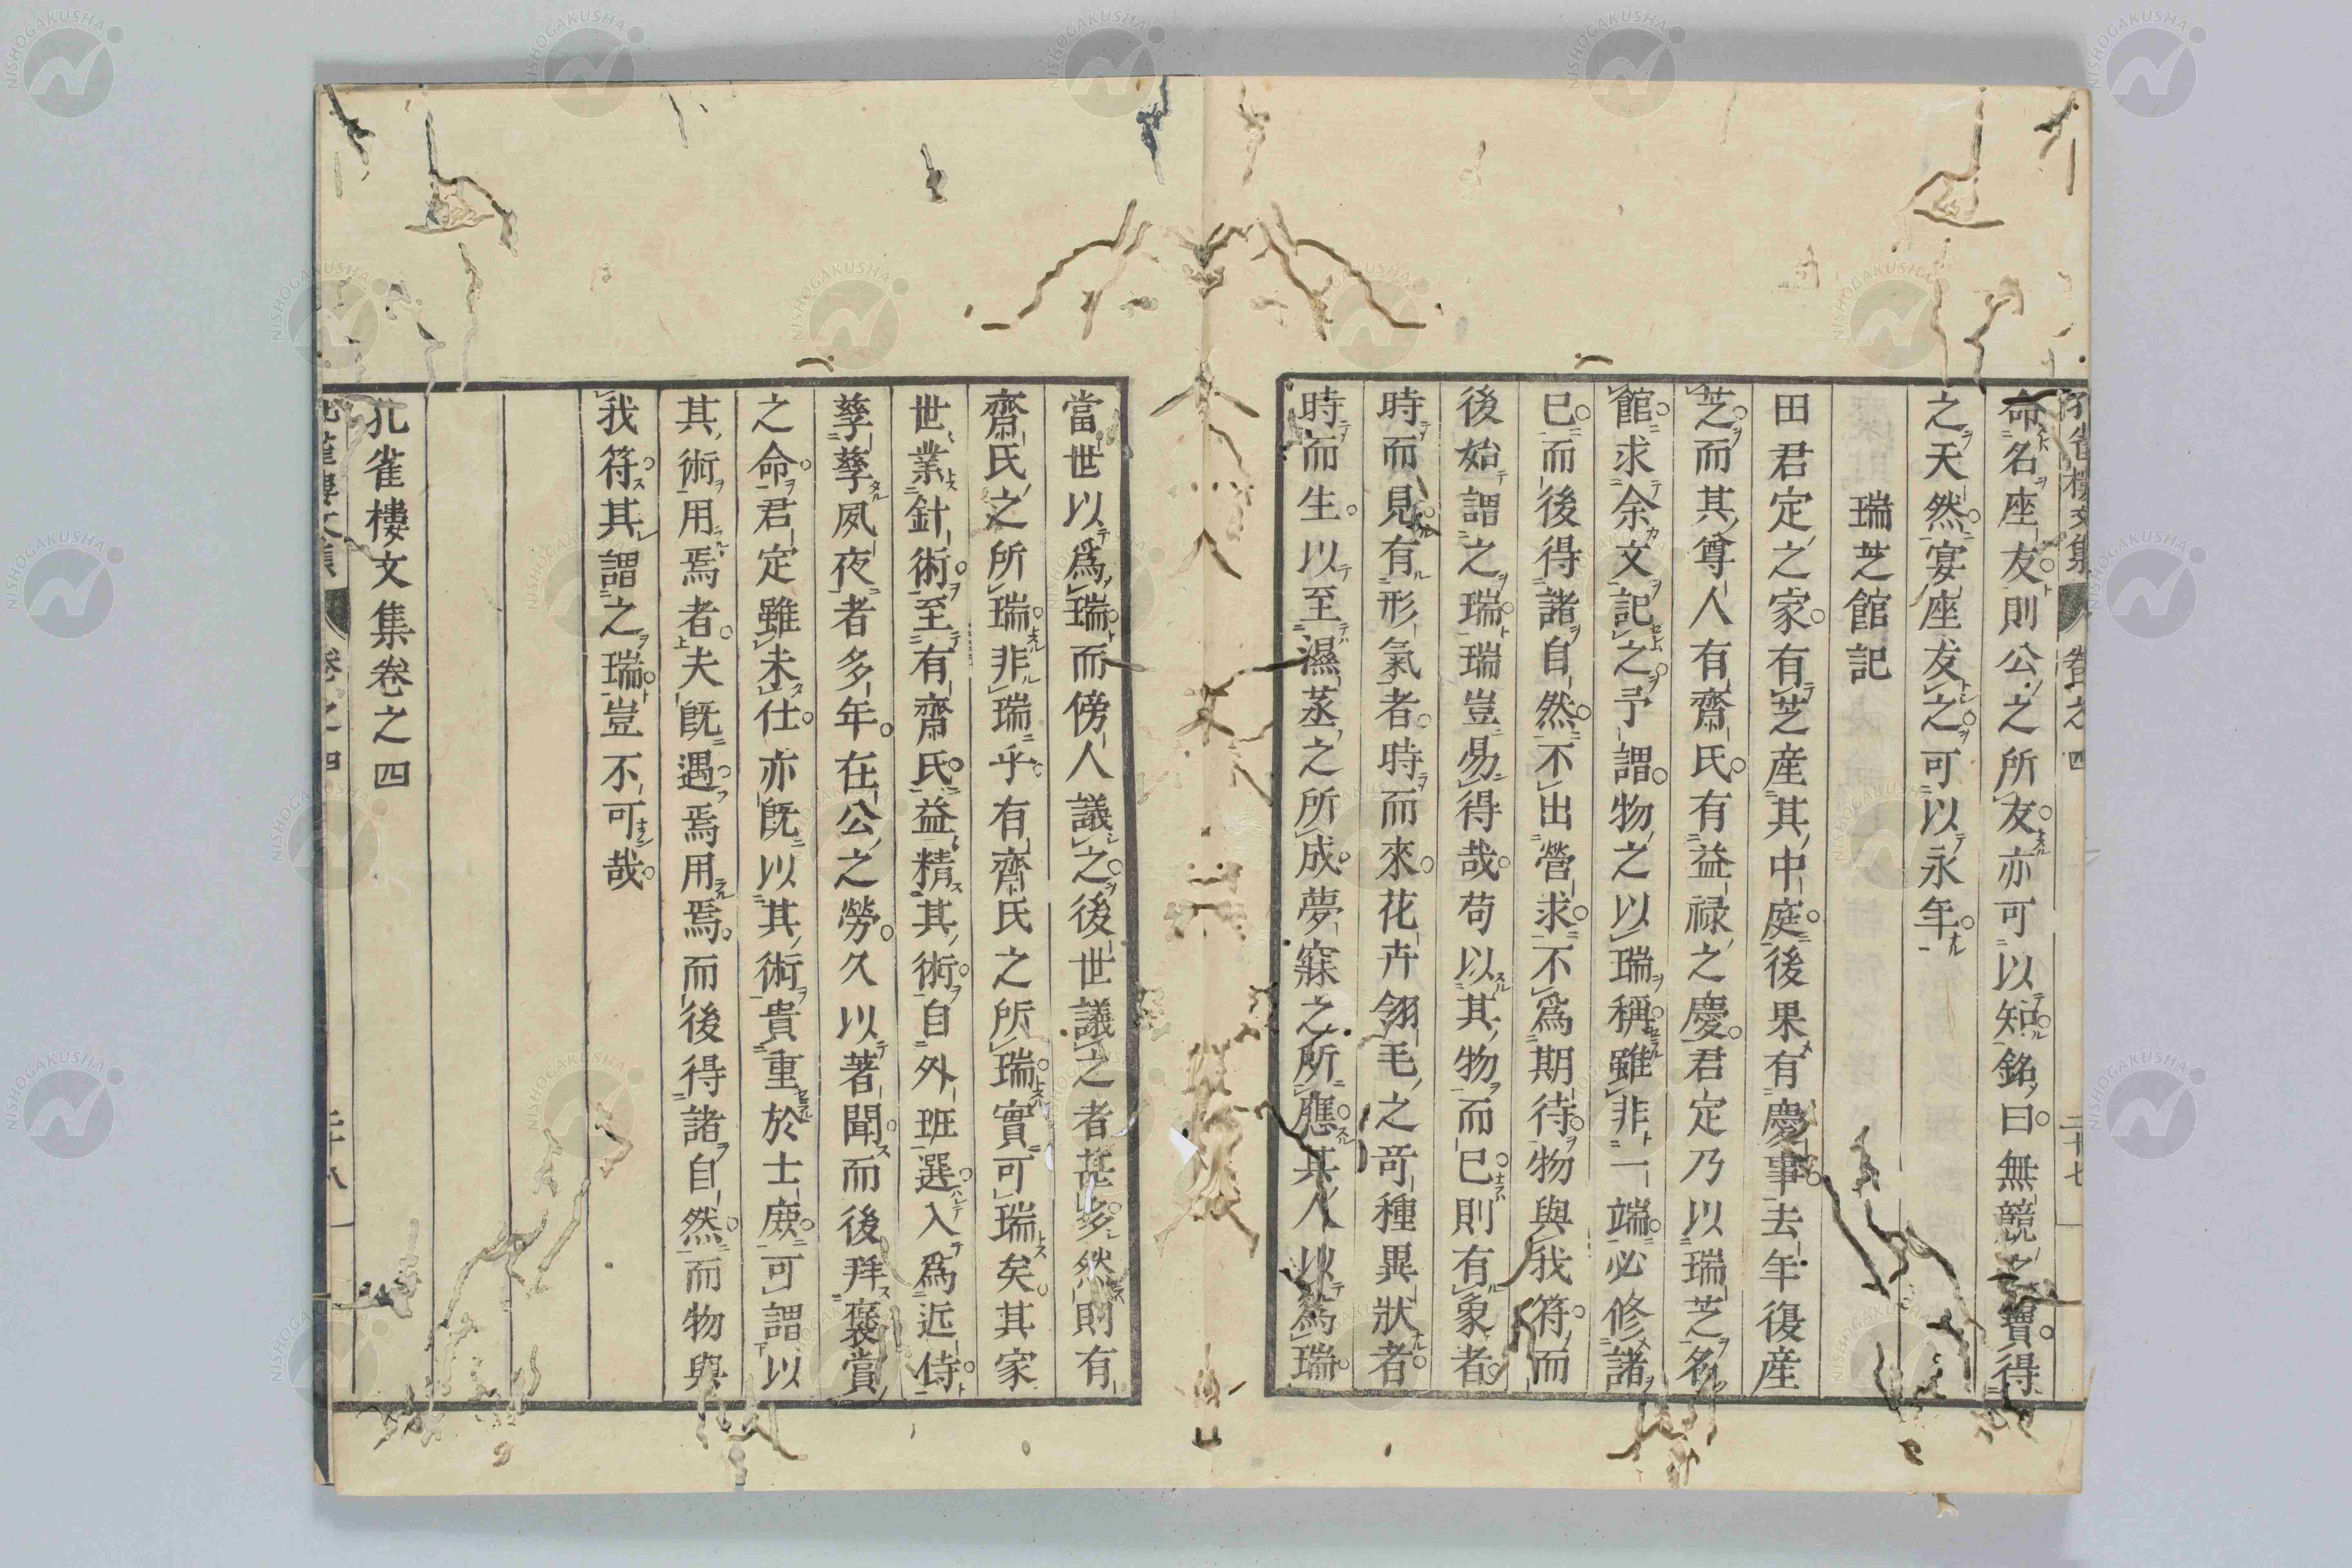 孔雀樓文集 卷之四 二十七
命名座友則公之所友亦可以知銘曰無競之寶得
之天然宴座友之可以永年
瑞芝館記
田君定之家有芝産其中庭後果有慶事去年復産
芝而其尊人有齋氏有益祿之慶君定乃以瑞芝名
館求余文記之予謂物之以瑞稱雖非一端必修諸
已而後得諸自然不出營求不爲期待物與我符而
後始謂之瑞瑞豈易得哉苟以其物而已則有象者
時而見有形氣者時而來花卉翎毛之奇種異狀者
時而生以至濕蒸之所成夢寐之所應其人以爲瑞
當世以爲瑞而傍人議之後世議之者甚多然則有
齋氏之所瑞非瑞乎有齊氏之所瑞實可瑞矣其家
世業針術至有齋氏益精其術自外班選入爲近侍
孳孳夙夜者多年在公之勞久以著聞而後拜褒賞
之命君定雖未仕亦既以其術貴重於士庶可謂以
其術用焉者夫既遇焉用焉而後得諸自然而物與
我符其謂之瑞豈不可哉
孔雀樓文集卷之四
卷之四
NISHOGAKUSHA